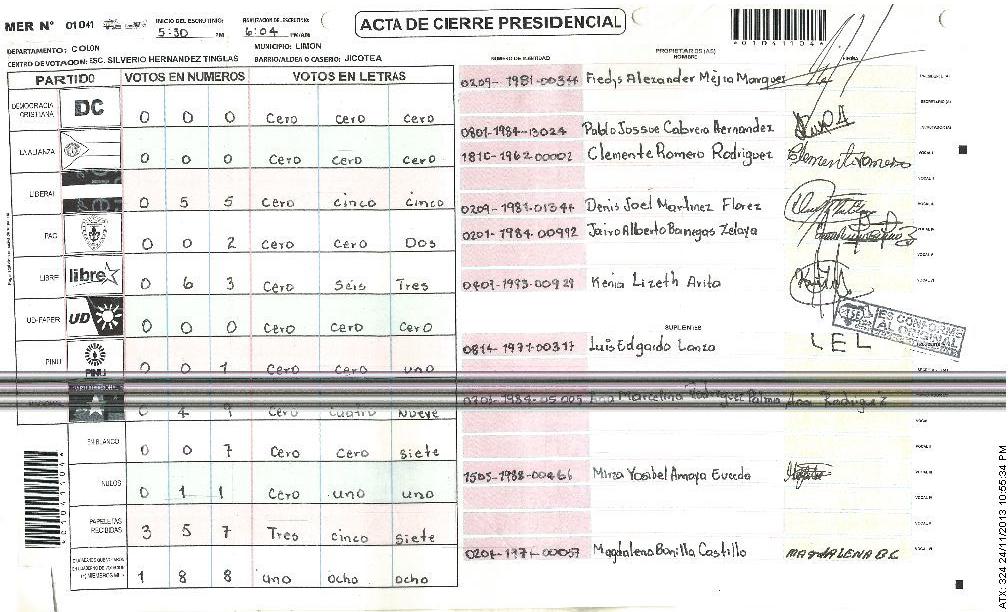 MER N° 01041
INICIO DEL ESCRUTINIO: 5:30 PM
6:04 PM/AM
ACTA DE CIERRE PRESIDENCIAL
*010411041*
DEPARTAMENTO: COLON
MUNICIPIO: LIMON
CENTRO DE VOTACION: ESC. SILVERIO HERNANDEZ TINGLAS BARRIO/ALDEA O CASERIO: JICOTEA
PARTIDO VOTOS EN NUMEROS VOTOS EN LETRAS
NUMERO DE IDENTIDAD PROPIETARIOS (AS) NOMBRE FIRMA
DEMOCRACIA CRISTIANA DC 0 0 0 Cero Cero Cero
LA ALIANZA 0 0 0 Cero Cero Cero
LIBERAL 0 5 5 Cero Cinco Cinco
PAC 0 0 2 Cero Cero Dos
LIBRE libre 0 6 3 Cero Seis Tres
UD-FAPER UD 0 0 0 Cero Cero Cero
PINU PINU 0 0 1 Cero Cero uno
0 4 9 Cero Cuatro Nueve
EN BLANCO 0 0 7 Cero Cero siete
NULOS 0 1 1 Cero uno uno
PAPELETAS RECIBIDAS 3 5 7 Tres cinco siete
1 8 8 uno ocho ocho
0209-1981-00344 Fredys Alexander Mejia Marquez
0801-1984-13024 Pablo Jossue Cabrera Hernandez
1810-1962-00002 Clemente Romero Rodriguez Clemente Romero
0209-1981-01344 Denis Joel Martinez Florez
0201-1984-00992 Jairo Alberto Banegas Zelaya
0401-1993-00929 Kenia Lizeth Avita
SUPLENTES
0814-1971-00317 Luis Edgardo Lanza LEL
0701-1984-05005 Ana Marcelina Rodriguez Palma Ana Rodriguez
1505-1988-00466 Mirza Yosibel Amaya Evcedo
0204-1974-00057 Magdalena Bonilla Castillo MAGDALENA B.C
TSE ES CONFORME AL ORIGINAL
ATX: 324 24/11/2013 10:55:34 PM